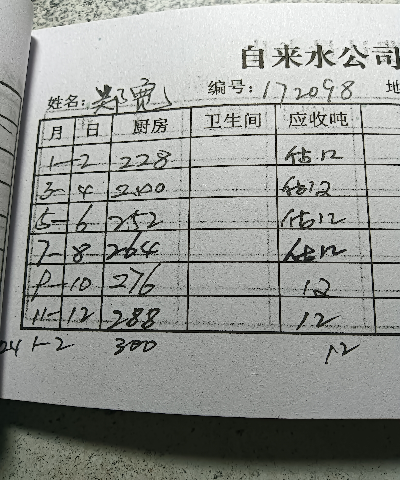 自来水公司
姓名: 郑宽 编号: 172098 地
月 日 厨房 卫生间 应收吨
1-2 228 估12
3-4 240 估12
5-6 252 估12
7-8 264 估12
9-10 276 12
11-12 288 12
24 1-2 300 12